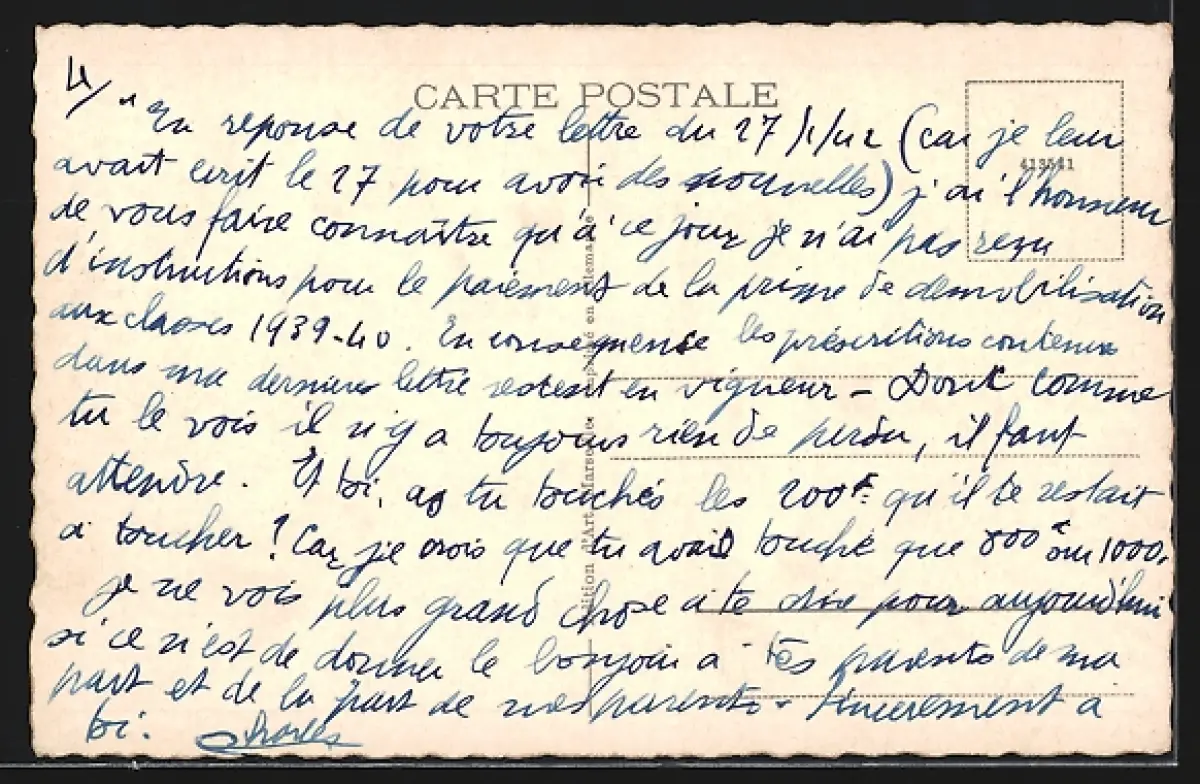 4/
CARTE POSTALE
"En reponse de votre lettre du 27/1/42 (car je leur
413541
avait ecrit le 27 pour avoir des nouvelles) j'ai l'honneur
de vous faire connaître qu'à ce jour je n'ai pas reçu
d'instructions pour le paiement de la prime de démobilisation
aux classes 1939-40. En consequence les préscritions contenues
dans ma derniere lettre restent en vigueur - Donc comme
tu le vois il n'y a toujours rien de perdu, il faut
attendre. Et toi, as tu touchés les 200F qu'il te restait
a toucher? Car je crois que tu avais touché que 800F ou 1000.
je ne vois plus grand chose a te dire pour aujourd'hui
si ce n'est de donner le bonjour a tes parents de ma
part et de la part de mes parents - Sincerement a
toi. Charles